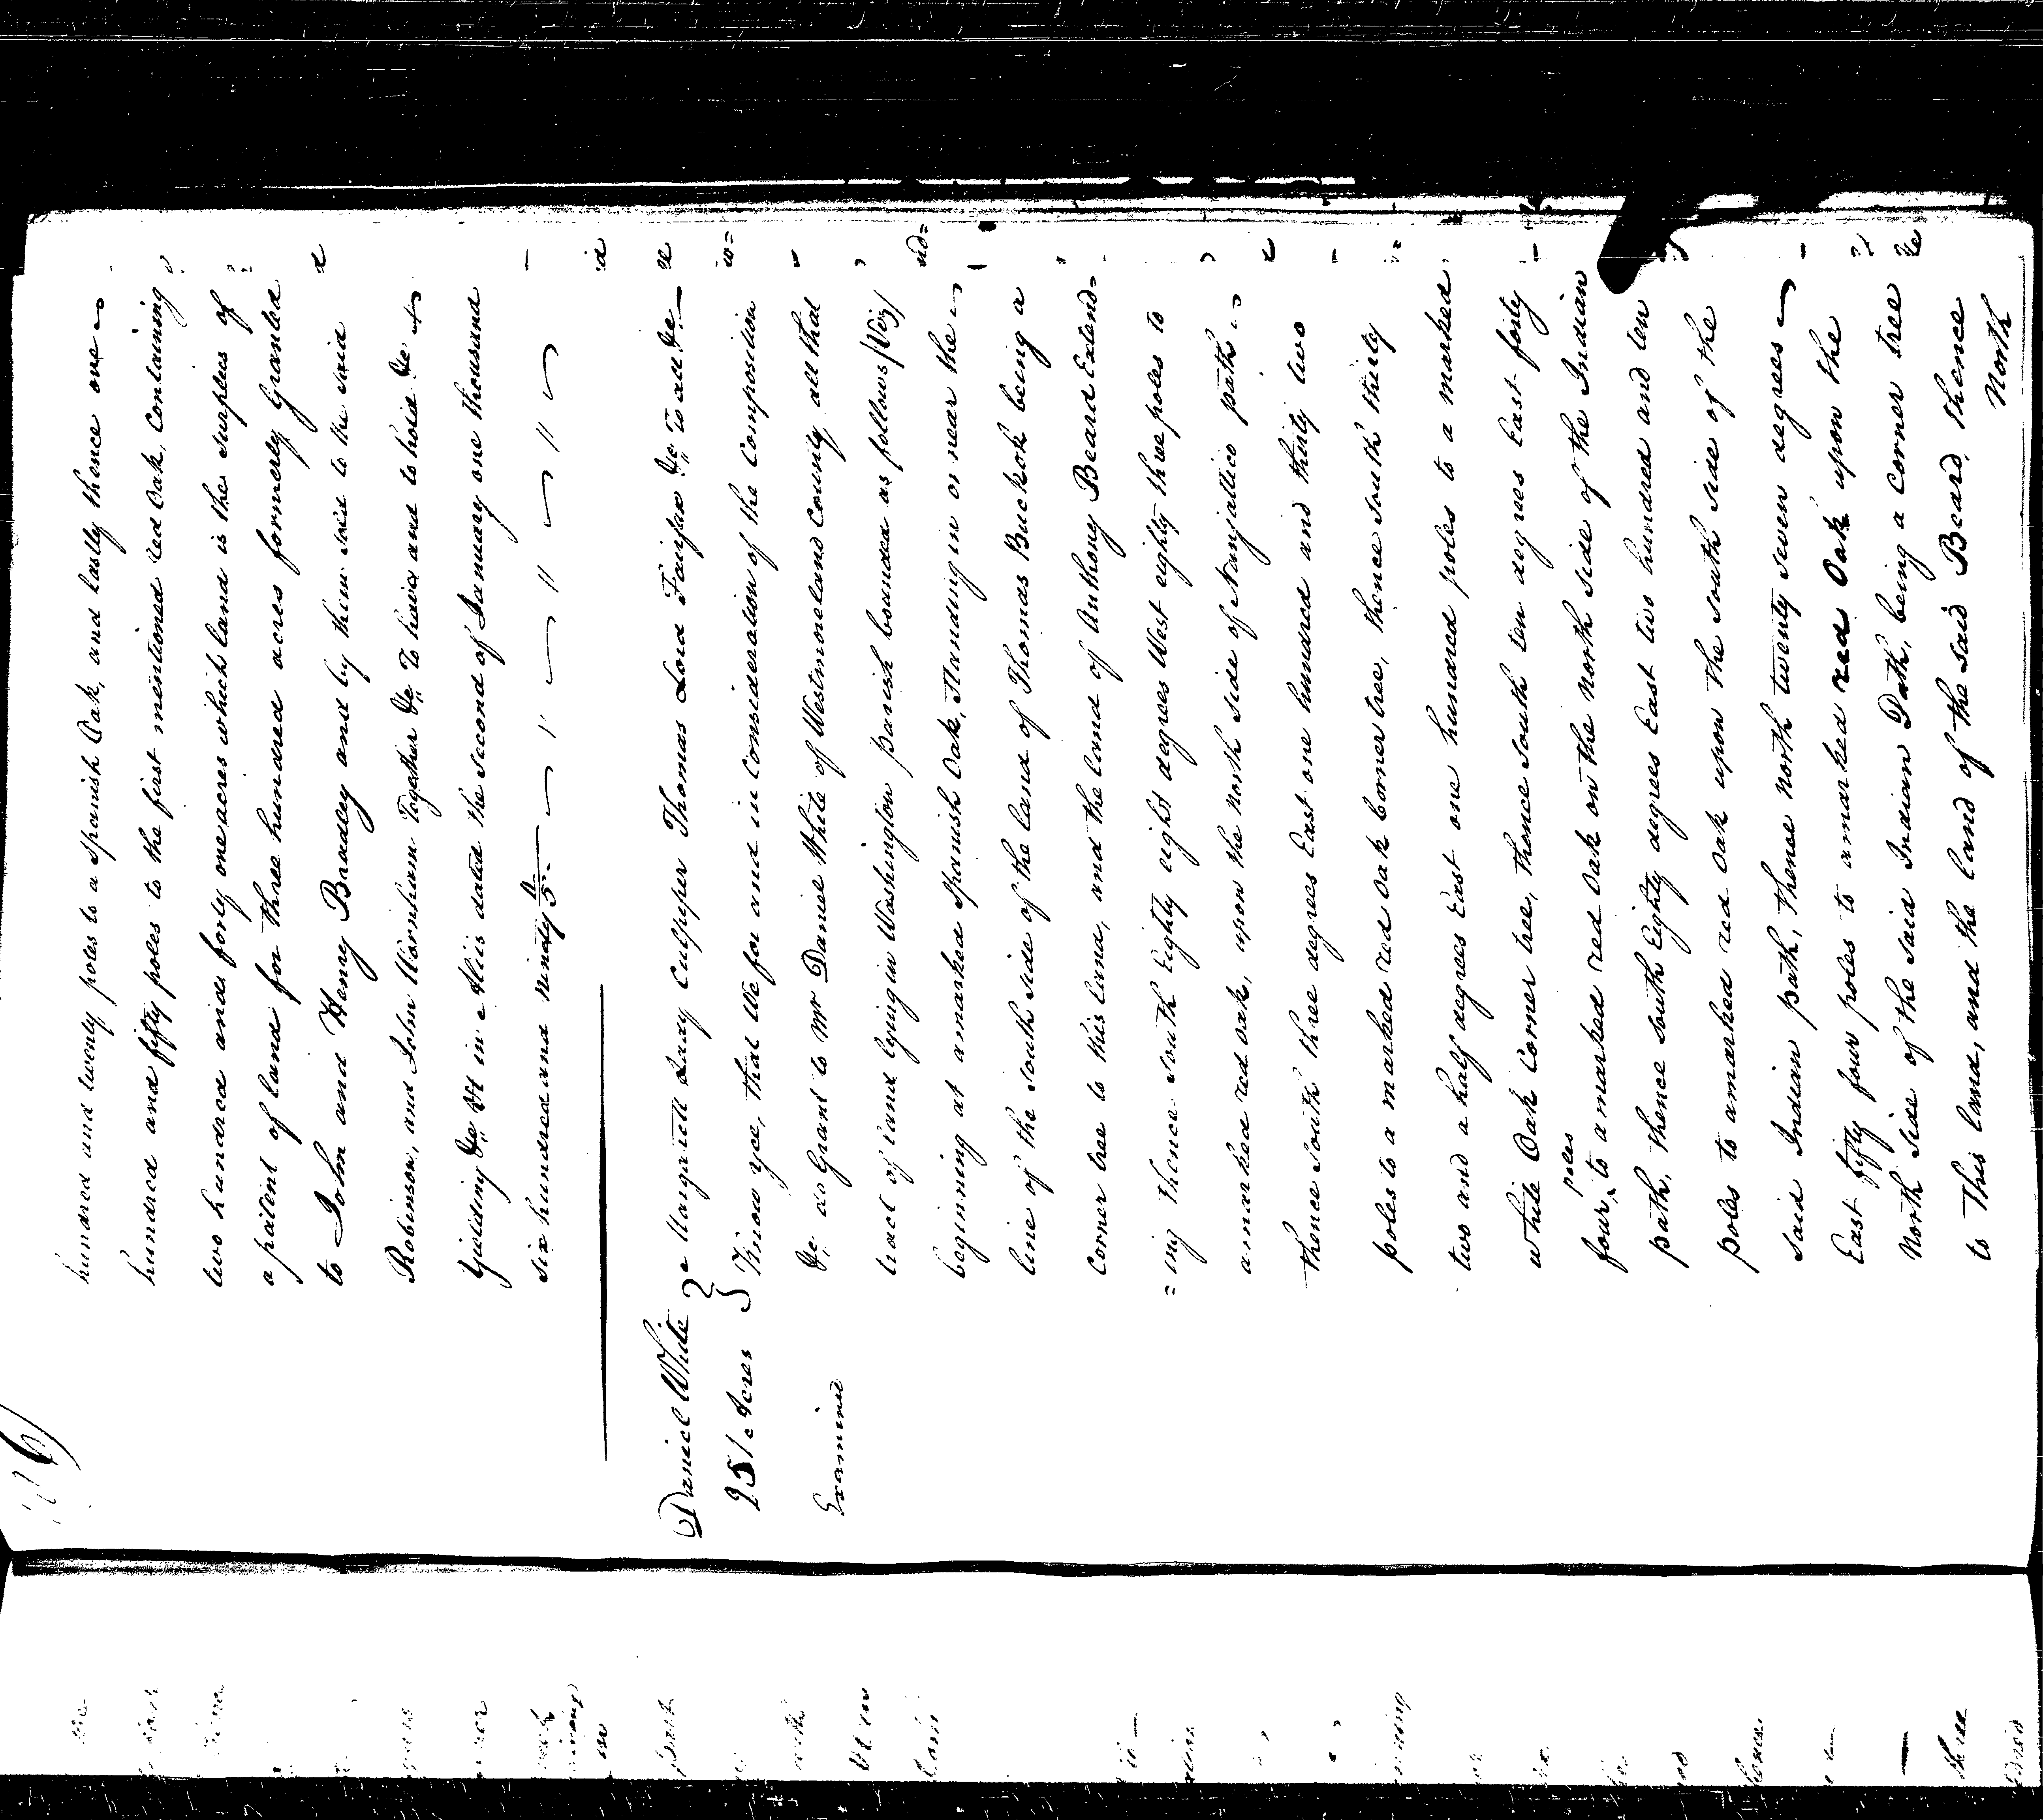 hundred and twenty poles to a spanish Oak, and lastly thence one
hundred and fifty poles to the first mentioned red Oak, Containing
two hundred and forty one acres which land is the surplus of
a patent of land for three hundred acres formerly Granted
to John and Henry Bradey and by them sold to the said
Robinson, and John Wornham Together &c To have and to hold &c
Yielding &c At in this dated the second of January one thousand
six hundred and ninety 4/5
Daniel White
251 Acres
Examined
Margrett Lady Culpeper Thomas Lord Fairfax &c To all &c
Know yee, that We for and in Consideration of the Composition
&c do Grant to Mr Daniel White of Westmoreland County all that
tract of land lying in Washington parish bounded as follows /Viz/
begining at a marked spanish Oak, standing in or near the
line of the South side of the land of Thomas Buckok being a
Corner tree to this land, and the land of Anthony Beard Extend=
=ing thence South Eighty eight degrees West eighty three poles to
a marked red oak, upon the North side of Nanjattico path
thence South three degrees East one hundred and thirty two
poles to a marked red oak Corner tree, thence South thirty
two and a half degrees East one hundred poles to a marked
white Oak Corner tree, thence South ten degrees East forty
four poles to a marked red Oak on the North side of the Indian
path, thence South Eighty degrees East two hundred and ten
poles to a marked red oak upon the South side of the
said Indian path, thence North twenty seven degrees
East fifty four poles to a marked red Oak upon the
North side of the said Indian Path, being a Corner tree
to this land, and the land of the said Beard, thence
North